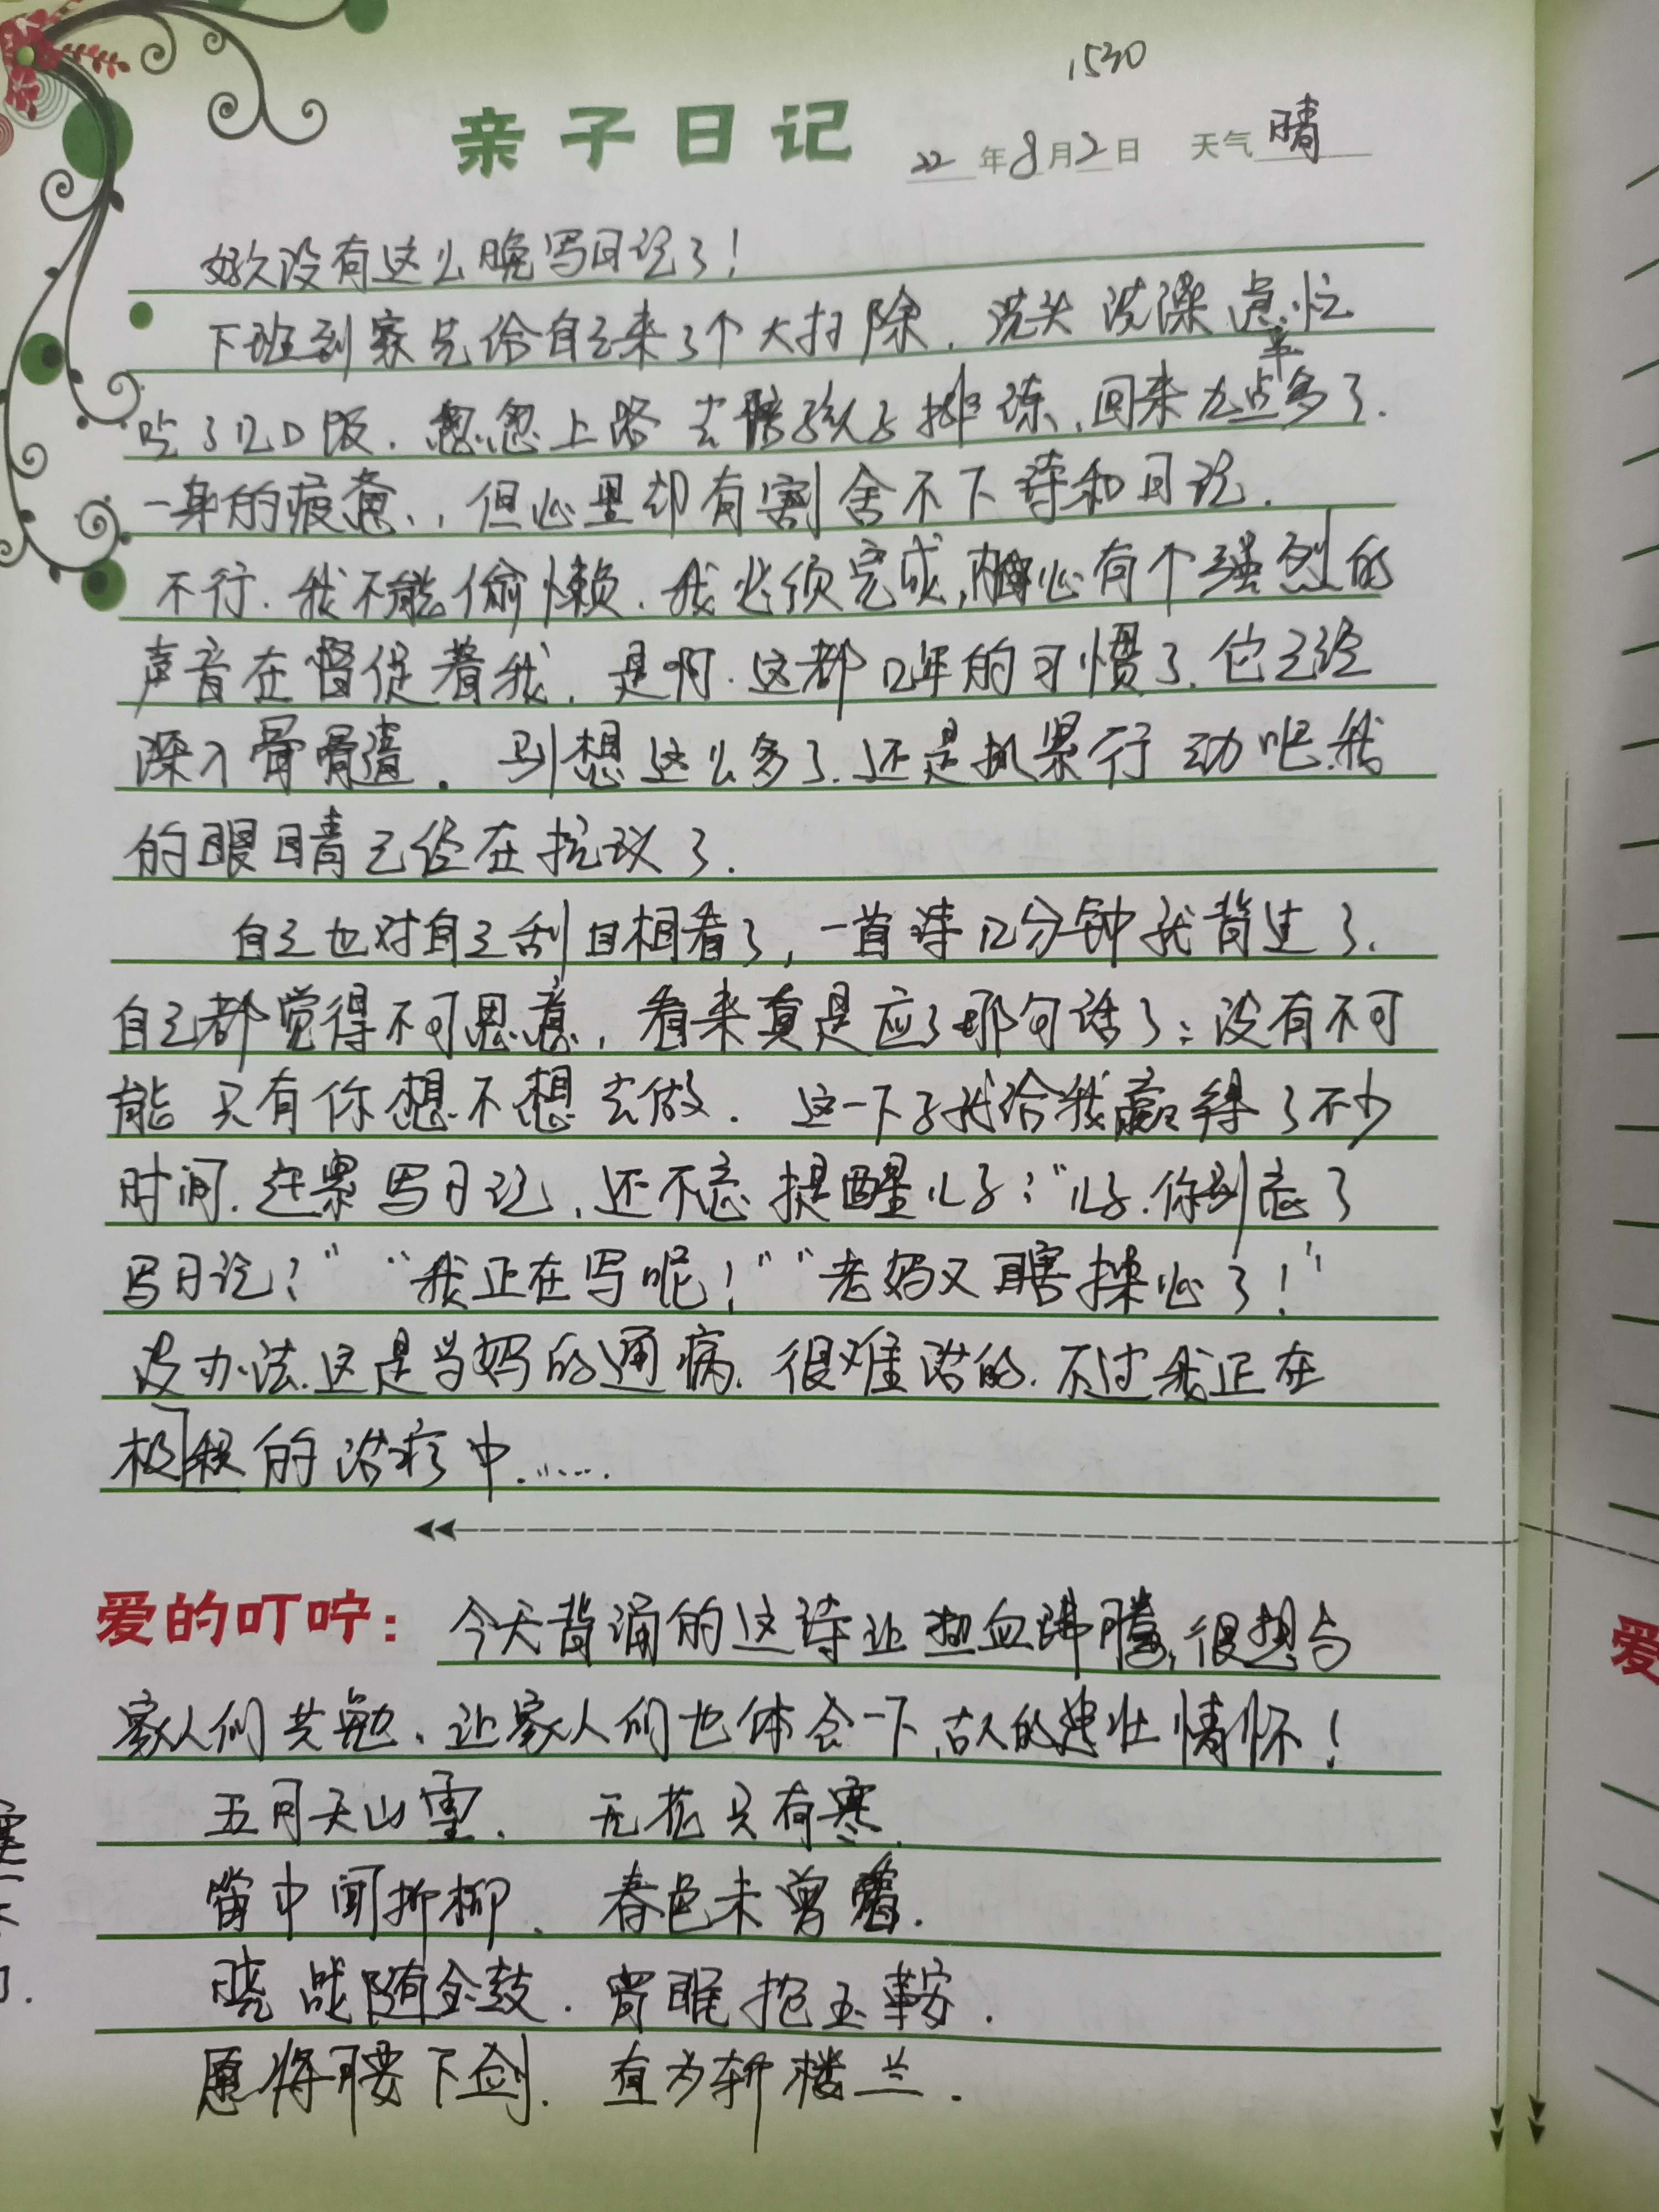 1530
亲子日记 22年8月2日 天气 晴
好久没有这么晚写日记了！
下班到家先给自己来了个大扫除，洗头洗澡忙
吃了几口饭，忽忽上路去陪孩子排练，回来九点半多了.
一身的疲惫，但心里却有割舍不下诗和日记.
不行.我不能偷懒.我必须完成，内心有个强烈的
声音在督促着我，是啊.这都几年的习惯了.它已经
深入骨髓。别想这么多了.还是抓紧行动吧.我
的眼睛已经在抗议了.
自己也对自己刮目相看了，一首诗几分钟就背过了.
自己都觉得不可思意，看来真是应了那句话了：没有不可
能 只有你想不想去做. 这一下子就给我赢得了不少
时间.赶紧写日记，还不忘提醒儿子：“儿子.你别忘了
写日记！”“我正在写呢！”“老妈又瞎操心了！”
没办法.这是当妈的通病.很难治的.不过我正在
积极的治疗中.……
爱的叮咛：今天背诵的这诗让热血沸腾，很想与
家人们共勉、让家人们也体会一下，古人的建壮情怀！
五月天山雪. 无花只有寒.
笛中闻折柳. 春色未曾看.
晓战随金鼓. 宵眠抱玉鞍.
愿将腰下剑. 直为斩楼兰.
爱